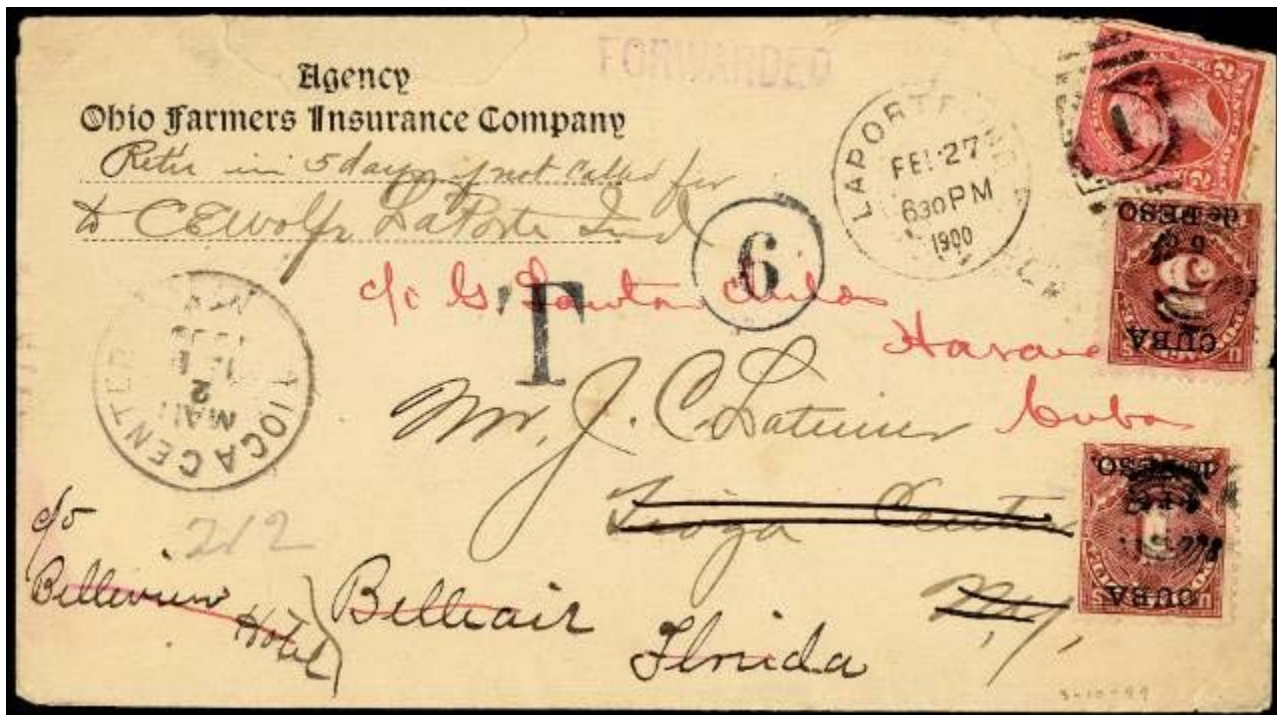 FORWARDED
Agency
Ohio Farmers Insurance Company
Retn in 5 days if not called for
to C E Wolfe LaPorte Ind
LAPORTE IND
FEB 27
630 PM
1900
1
6
T
c/o G
Havana
Cuba
Mr. J. C. Latimer
Tioga Center
N.Y.
TIOGA CENTER
N.Y.
MAR
2
1900
212
c/o
Belleview
Hotel
Belleair
Florida
2
CUBA
de PESO
CUBA
de PESO.
3-10-99